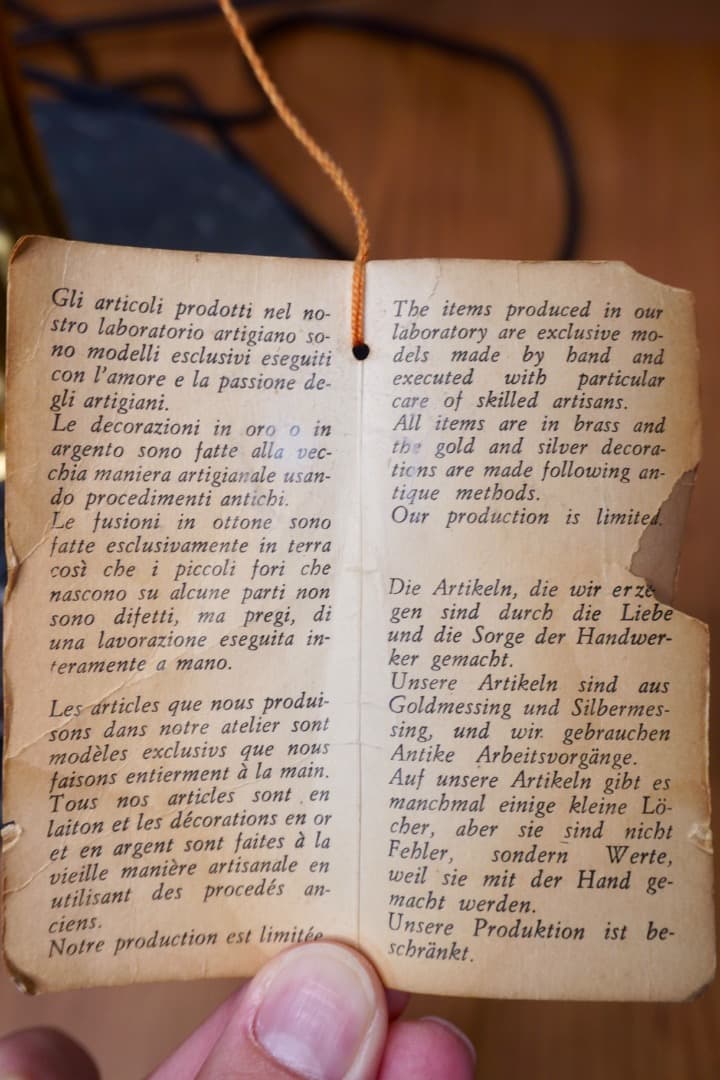 Gli articoli prodotti nel no-
stro laboratorio artigiano so-
no modelli esclusivi eseguiti
con l'amore e la passione de-
gli artigiani.
Le decorazioni in oro o in
argento sono fatte alla vec-
chia maniera artigianale usan-
do procedimenti antichi.
Le fusioni in ottone sono
fatte esclusivamente in terra
così che i piccoli fori che
nascono su alcune parti non
sono difetti, ma pregi, di
una lavorazione eseguita in-
teramente a mano.
Les articles que nous produi-
sons dans notre atelier sont
modèles exclusivs que nous
faisons entierment à la main.
Tous nos articles sont en
laiton et les décorations en or
et en argent sont faites à la
vieille manière artisanale en
utilisant des procedés an-
ciens.
Notre production est limitée
The items produced in our
laboratory are exclusive mo-
dels made by hand and
executed with particular
care of skilled artisans.
All items are in brass and
the gold and silver decora-
tions are made following an-
tique methods.
Our production is limited.
Die Artikeln, die wir erze
gen sind durch die Liebe
und die Sorge der Handwer-
ker gemacht.
Unsere Artikeln sind aus
Goldmessing und Silbermes-
sing, und wir gebrauchen
Antike Arbeitsvorgänge.
Auf unsere Artikeln gibt es
manchmal einige kleine Lö-
cher, aber sie sind nicht
Fehler, sondern Werte,
weil sie mit der Hand ge-
macht werden.
Unsere Produktion ist be-
schränkt.